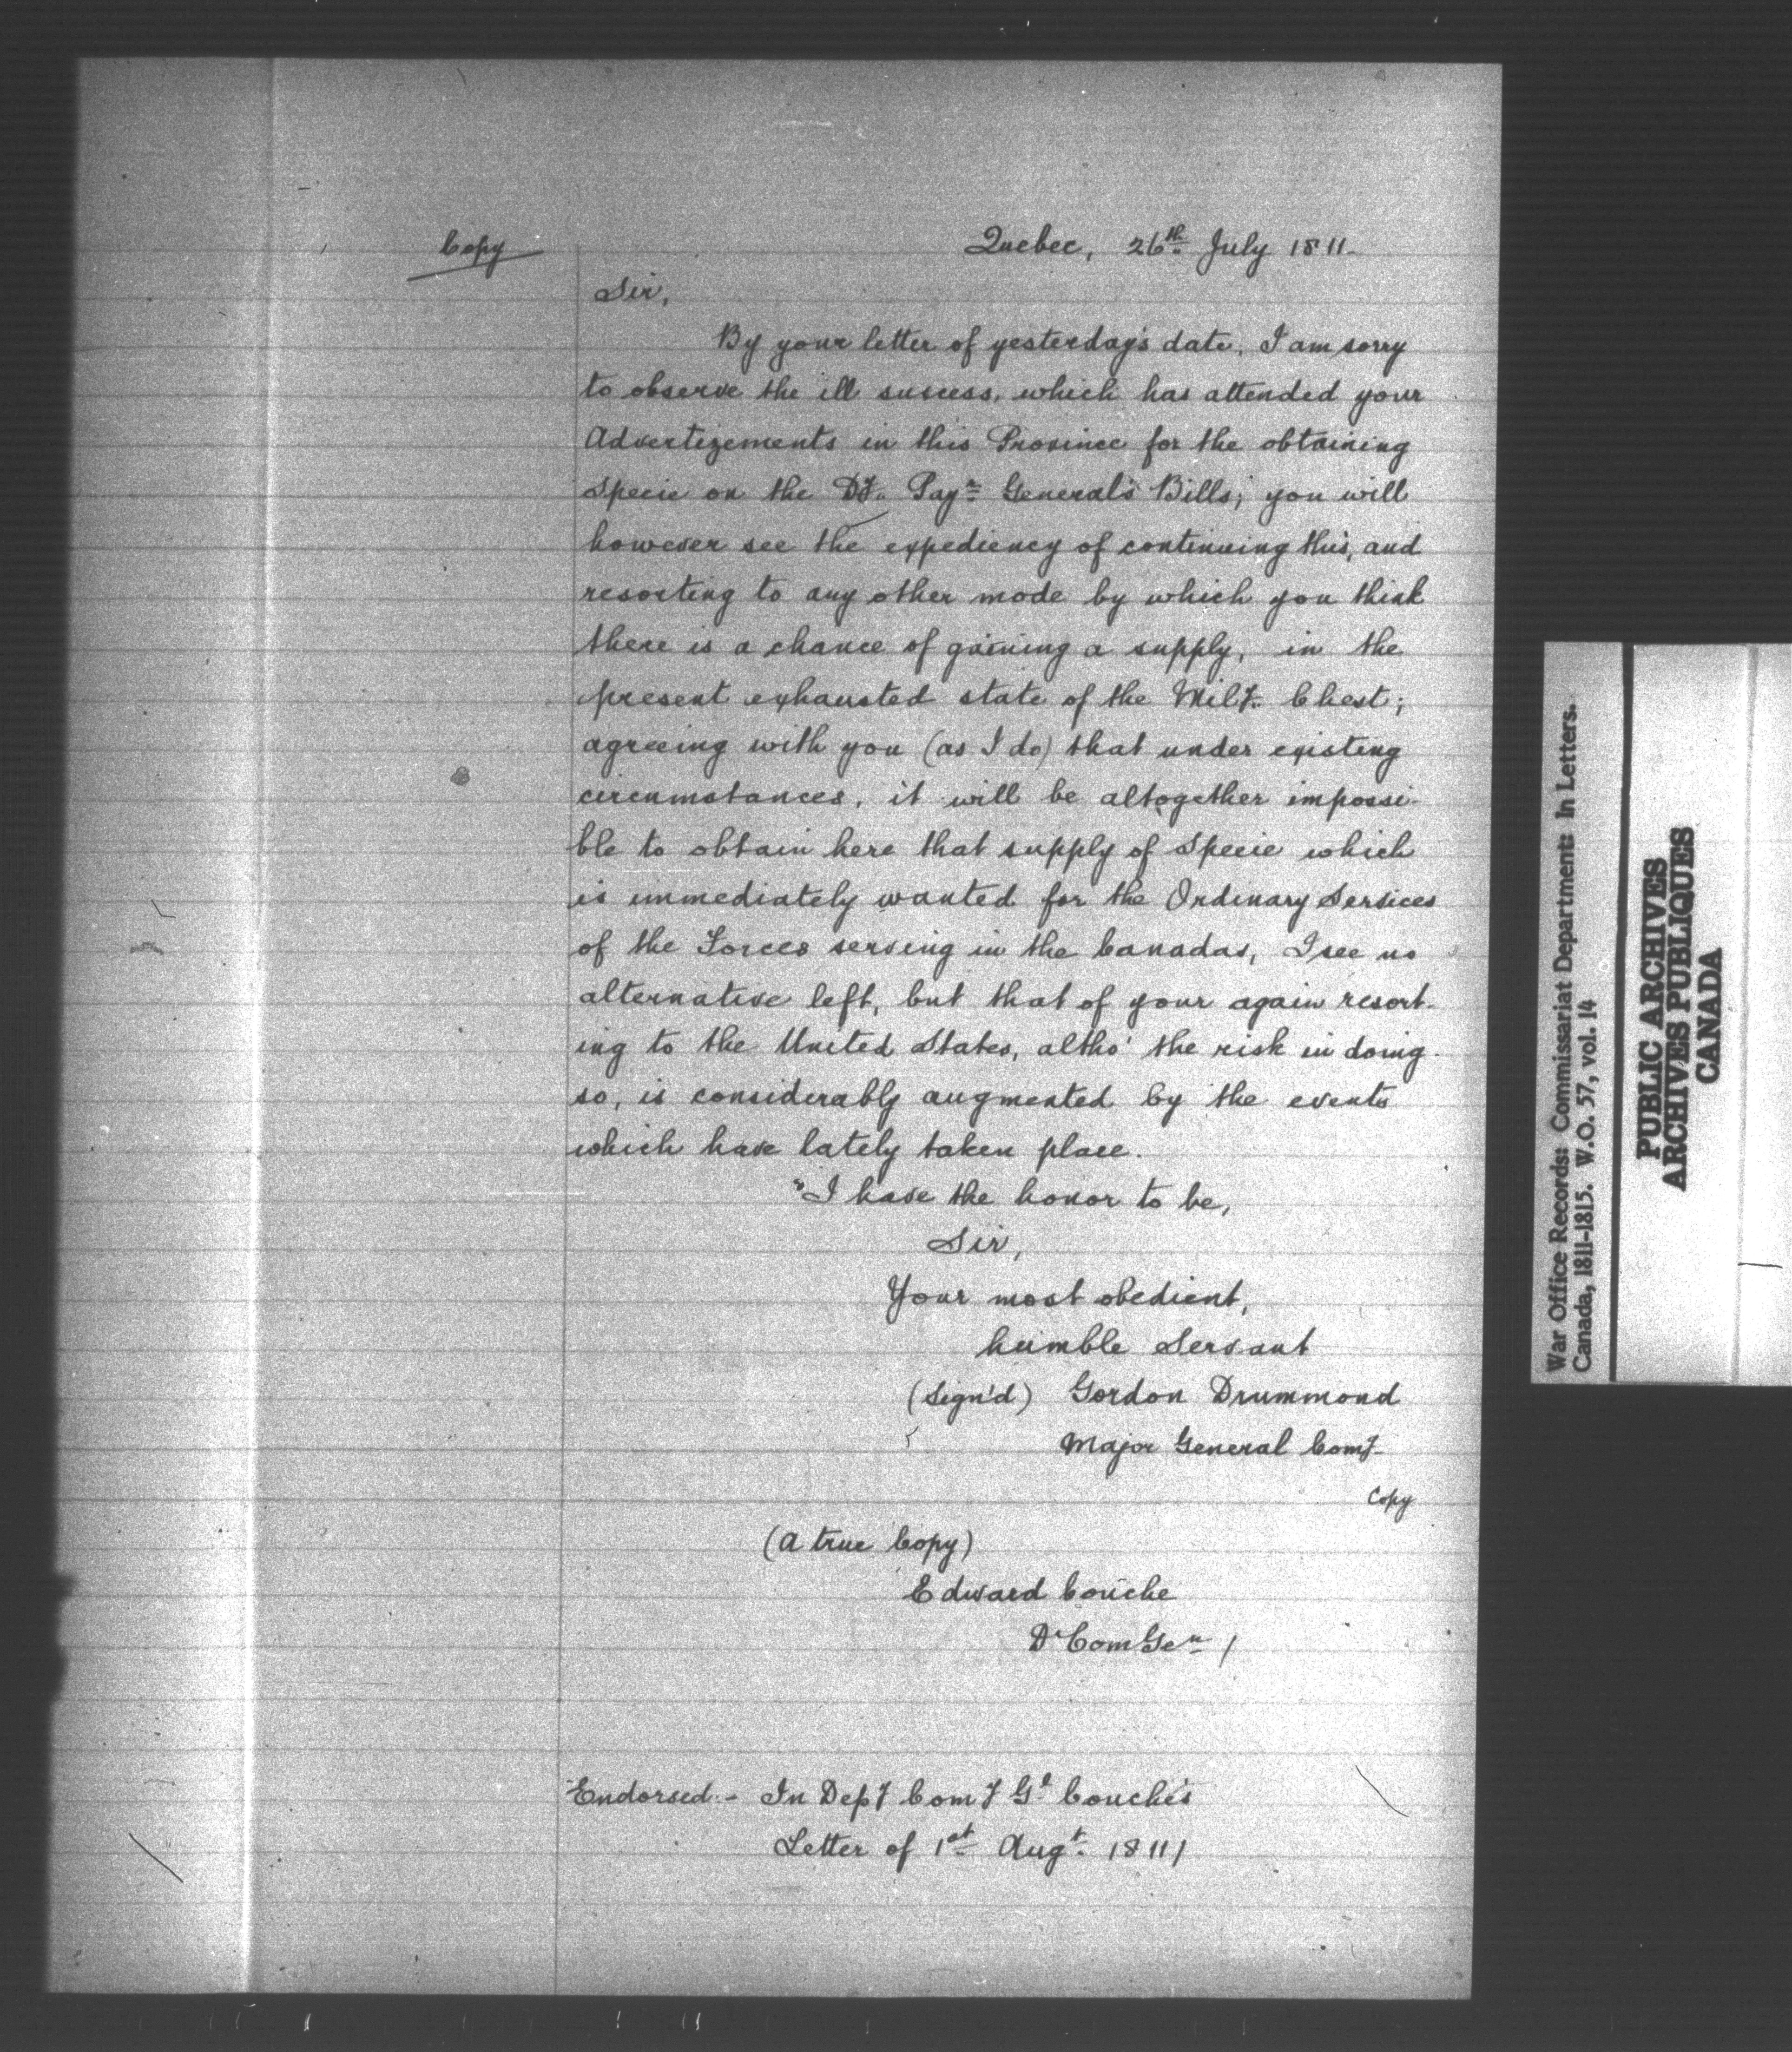 Copy
Quebec, 26th July 1811.
Sir,
By your letter of yesterday's date, I am sorry
to observe the ill success, which has attended your
Advertizements in this Province for the obtaining
Specie on the Dy. Payr General's Bills; you will
however see the expediency of continuing this, and
resorting to any other mode by which you think
there is a chance of gaining a supply, in the
present exhausted state of the Mily. Chest;
agreeing with you (as I do) that under existing
circumstances, it will be altogether impossi-
ble to obtain here that supply of Specie which
is immediately wanted for the Ordinary Services
of the Forces serving in the Canadas, I see no
alternative left, but that of your again resort-
ing to the United States, altho' the risk in doing
so, is considerably augmented by the events
which have lately taken place.
"I have the honor to be,
Sir,
Your most obedient,
humble Servant
(Sign'd) Gordon Drummond
Major General Comg
Copy
(A true Copy)
Edward Couche
D Com Gen /
Endorsed:- In Depy Comy Gl Couche's
Letter of 1st Augt. 1811/
War Office Records: Commissariat Department: In Letters.
Canada, 1811-1815. W.O. 57, vol. 14
PUBLIC ARCHIVES
ARCHIVES PUBLIQUES
CANADA